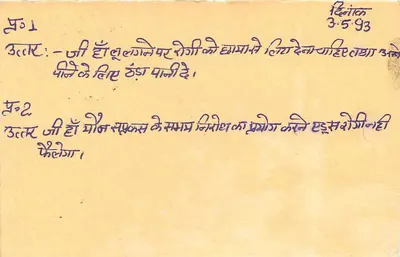 दिनांक
3.5.93
प्र॰1
उत्तर :- जी हाँ लू लगने पर रोगी को छाया मे लिटा देना चाहिए तथा उसे
पीने के लिए ठंडा पानी दे।
प्र॰2
उत्तर जी हाँ यौन सम्पर्क के समय निरोध का प्रयोग करने एड्स रोग नही
फैलेगा।